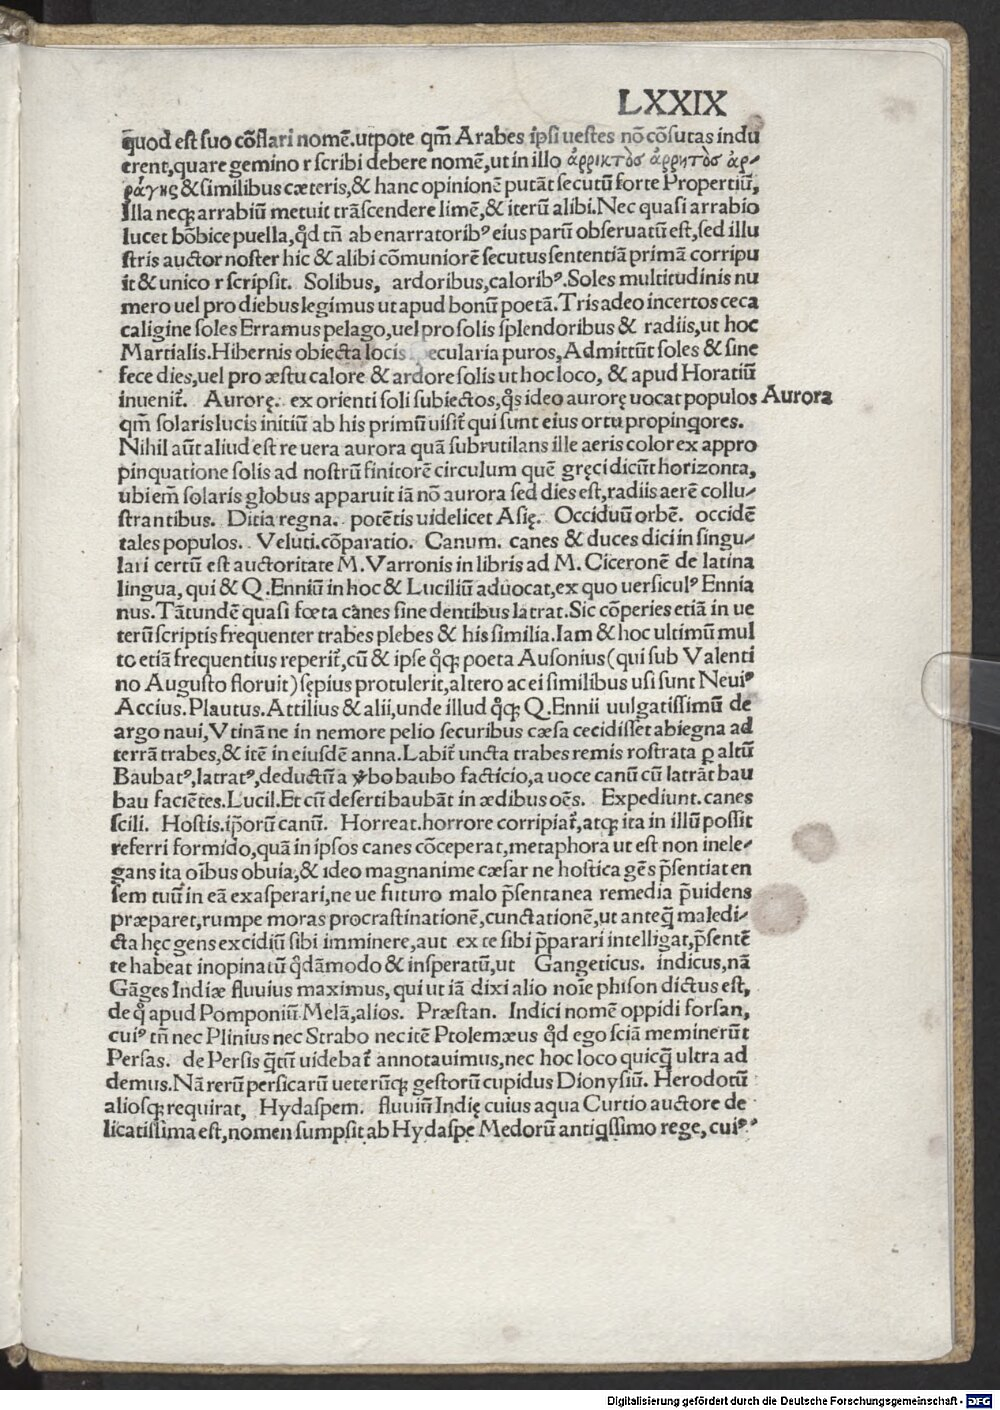 LXXIX
q̄uod est suo cōflari nomē.utpote qm̄ Arabes ipsi uestes nō cōsutas indu
erent,quare gemino r scribi debere nomē,ut in illo ἀρρικτὸσ ἀρρητὸσ ἀρ-
ρἁγης & similibus cæteris,& hanc opinionē putāt secutū forte Propertiū,
Illa neq; arrabiū metuit trāscendere limē,& iterū alibi.Nec quasi arrabio
lucet bōbice puella,q̊d tñ ab enarratoribꝰ eius parū obseruatū est,sed illu
stris auctor noster hic & alibi cōmuniorē secutus sententiā primā corripu
it & unico r scripsit. Solibus, ardoribus,caloribꝰ.Soles multitudinis nu
mero uel pro diebus legimus ut apud bonū poetā.Tris adeo incertos ceca
caligine soles Erramus pelago,uel pro solis splendoribus & radiis,ut hoc
Martialis.Hibernis obiecta locis specularia puros,Admittūt soles & sine
fece dies,uel pro æstu calore & ardore solis ut hoc loco, & apud Horatiū
inuenit᷑. Aurorę. ex orienti soli subiectos,q̊s ideo aurorę uocat populos Aurora
qm̄ solaris lucis initiū ab his primū uisit᷑ qui sunt eius ortu propinqores.
Nihil aūt aliud est re uera aurora quā subrutilans ille aeris color ex appro
pinquatione solis ad nostrū finitorē circulum quē gręci dicūt horizonta,
ubi em̄ solaris globus apparuit iā nō aurora sed dies est,radiis aerē collu-
strantibus. Ditia regna. potētis uidelicet Asię. Occiduū orbē. occidē
tales populos. Veluti.cōparatio. Canum. canes & duces dici in singu-
lari certū est auctoritate M.Varronis in libris ad M.Ciceronē de latina
lingua, qui & Q.Enniū in hoc & Luciliū aduocat,ex quo uersiculꝰ Ennia
nus.Tātundē quasi fœta canes sine dentibus latrat.Sic cōperies etiā in ue
terū scriptis frequenter trabes plebes & his similia.Iam & hoc ultimū mul
to etiā frequentius reperit᷑,cū & ipse q̊q; poeta Ausonius(qui sub Valenti
no Augusto floruit)sępius protulerit,altero ac ei similibus usi sunt Neuiꝰ
Accius.Plautus.Attilius & alii,unde illud q̊q; Q.Ennii uulgatissimū de
argo naui,Vtinā ne in nemore pelio securibus cæsa cecidisset abiegna ad
terrā trabes,& itē in eiusdē anna.Labit᷑ uncta trabes remis rostrata ꝑ altū
Baubatꝰ,latratꝰ,deductū a v̄bo baubo facticio,a uoce canū cū latrāt bau
bau faciētes.Lucil.Et cū deserti baubāt in ædibus oēs. Expediunt.canes
scili. Hostis.ip̄orū canū. Horreat.horrore corripiat᷑,atq; ita in illū possit
referri formido,quā in ipsos canes cōceperat,metaphora ut est non inele-
gans ita oībus obuia,& ideo magnanime cæsar ne hostica gēs p̄sentiat en
sem tuū in eā exasperari,ne ue futuro malo p̄sentanea remedia p̄uidens
præparet,rumpe moras procrastinationē,cunctationē,ut anteq̄ maledi-
cta hęc gens excidiū sibi imminere,aut ex te sibi p̄parari intelligat,p̄sentē
te habeat inopinatū q̊dāmodo & insperatū,ut Gangeticus. indicus,nā
Gāges Indiæ fluuius maximus, qui ut iā dixi alio noīe phison dictus est,
de q̊ apud Pomponiū Melā,alios. Præstan. Indici nomē oppidi forsan,
cuiꝰ tñ nec Plinius nec Strabo nec itē Ptolemæus q̊d ego sciā meminerūt
Persas. de Persis q̄tū uidebat᷑ annotauimus,nec hoc loco quicq̄ ultra ad
demus.Nā rerū persicarū ueterūq; gestorū cupidus Dionysiū. Herodotū
aliosq; requirat, Hydaspem. fluuiū Indię cuius aqua Curtio auctore de
licatissima est,nomen sumpsit ab Hydaspe Medorū antiqssimo rege, cuiꝰ
Digitalisierung gefördert durch die Deutsche Forschungsgemeinschaft - DFG